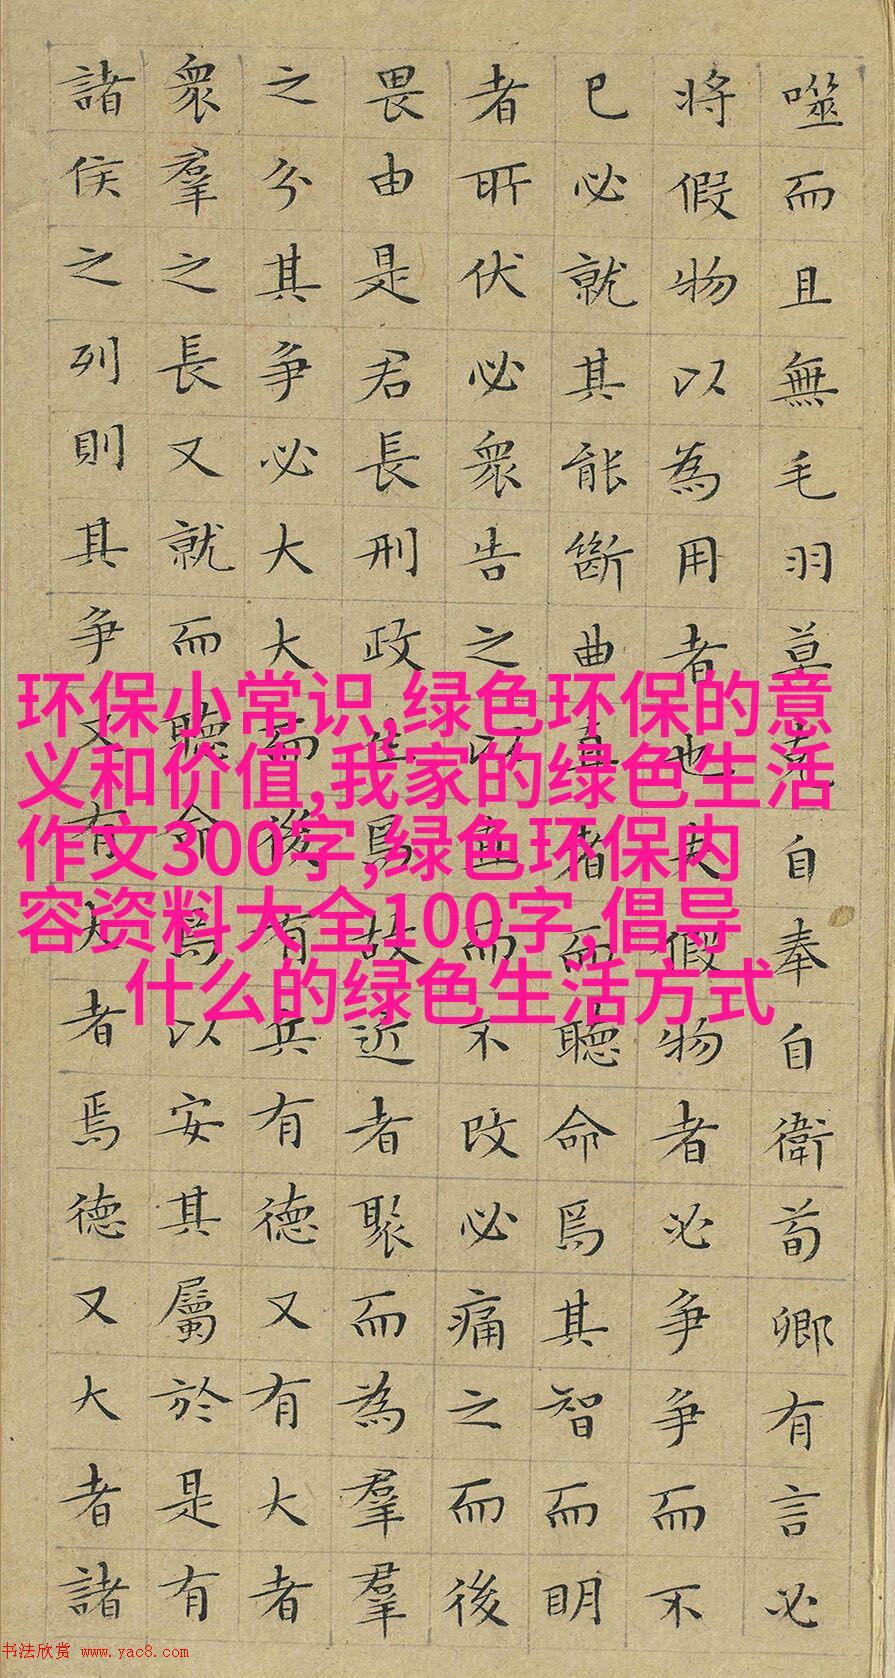 噬而且無毛羽莫克自奉自衛荀卿有言必
將假物以為用者也夫假物者必爭爭而不
已必就其能斷曲直者而聽命焉其智而明
者所伏必衆告之以直而不改必痛之而後
畏由是君長刑政生焉故近者聚而為羣羣
之分其爭必大大而後有兵有德又有大者
衆羣之長又就而聽命焉以安其屬於是有
諸侯之列則其爭又有大者焉德又大者諸
环保小常识,绿色环保的意
义和价值,我家的绿色生活
作文300字,绿色环保内
容资料大全100字,倡导
什么的绿色生活方式
书法欣赏 www.yac8.com